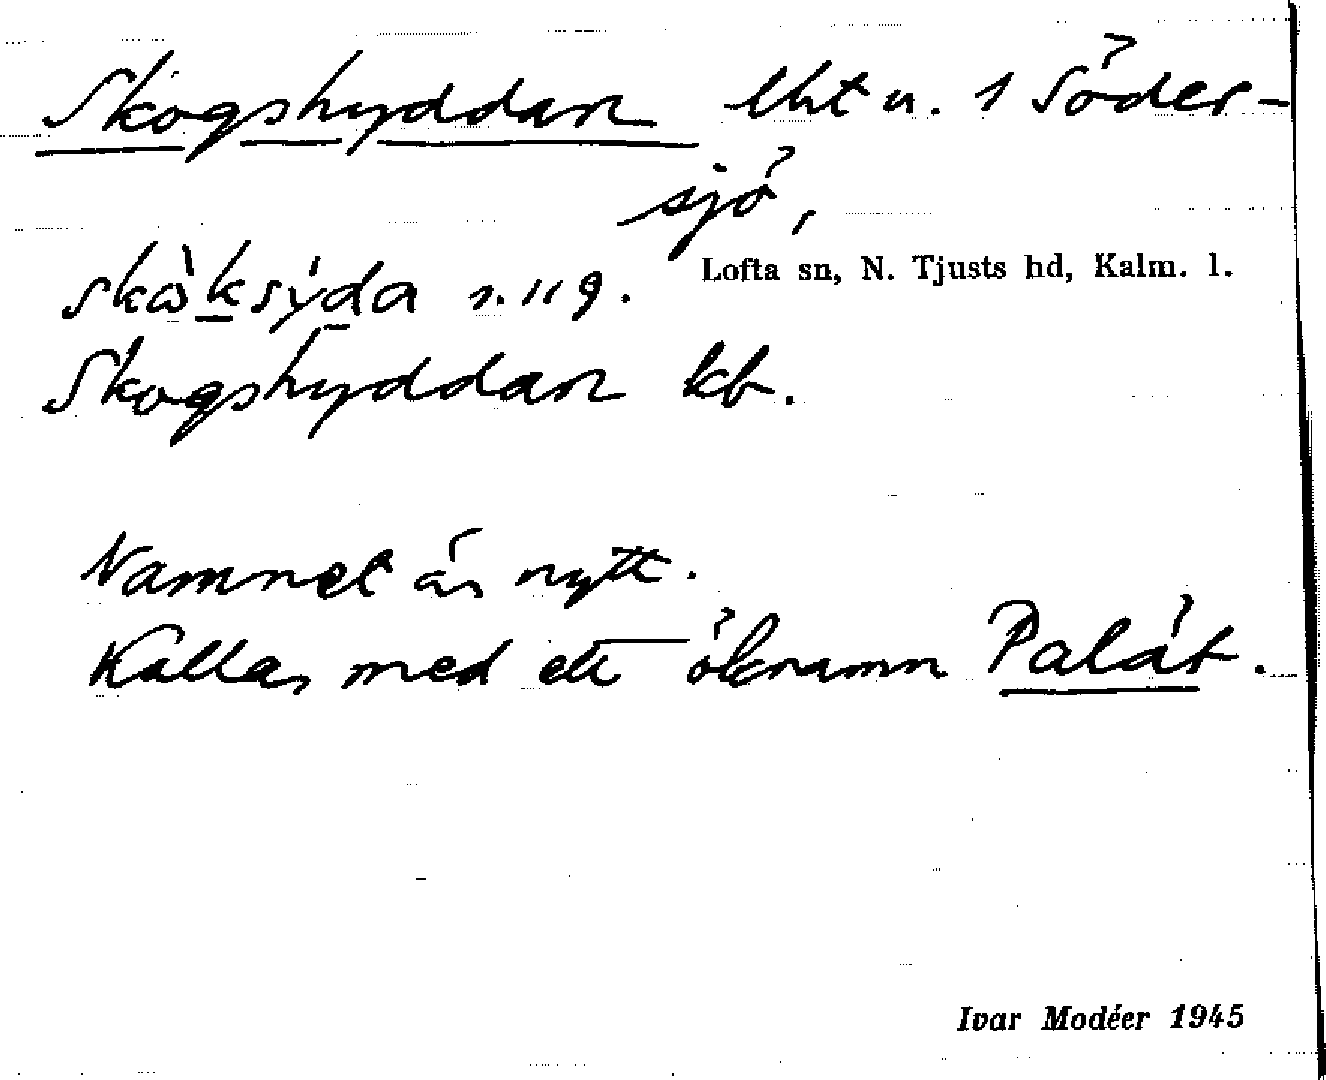 Skogshyddan lht u. 1 Söder-
sjö,
skò̤ksýda s. 119.
Lofta sn, N. Tjusts hd, Kalm. l.
Skogshyddan kb.
Namnet är nytt.
Kallas med ett öknamn Palát.
Ivar Modéer 1945